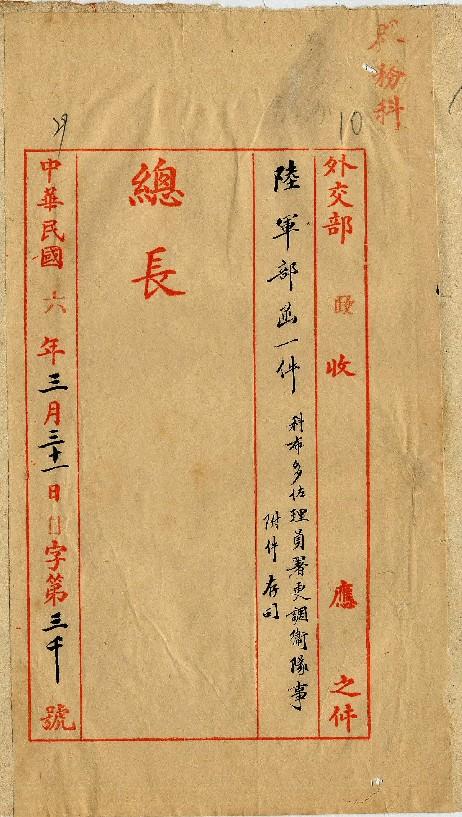 務科
10
外交部 政 收 應 之件
陸軍部函一件 科布多佐理員署更調衞隊事
附件存司
總長
中華民國六年三月三十一日 字第三千號